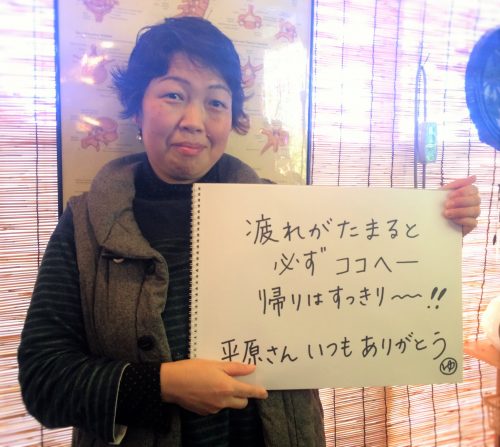 疲れがたまると
必ず ココヘー
帰りはすっきり〜〜!!
平原さん いつも ありがとう
ゆ